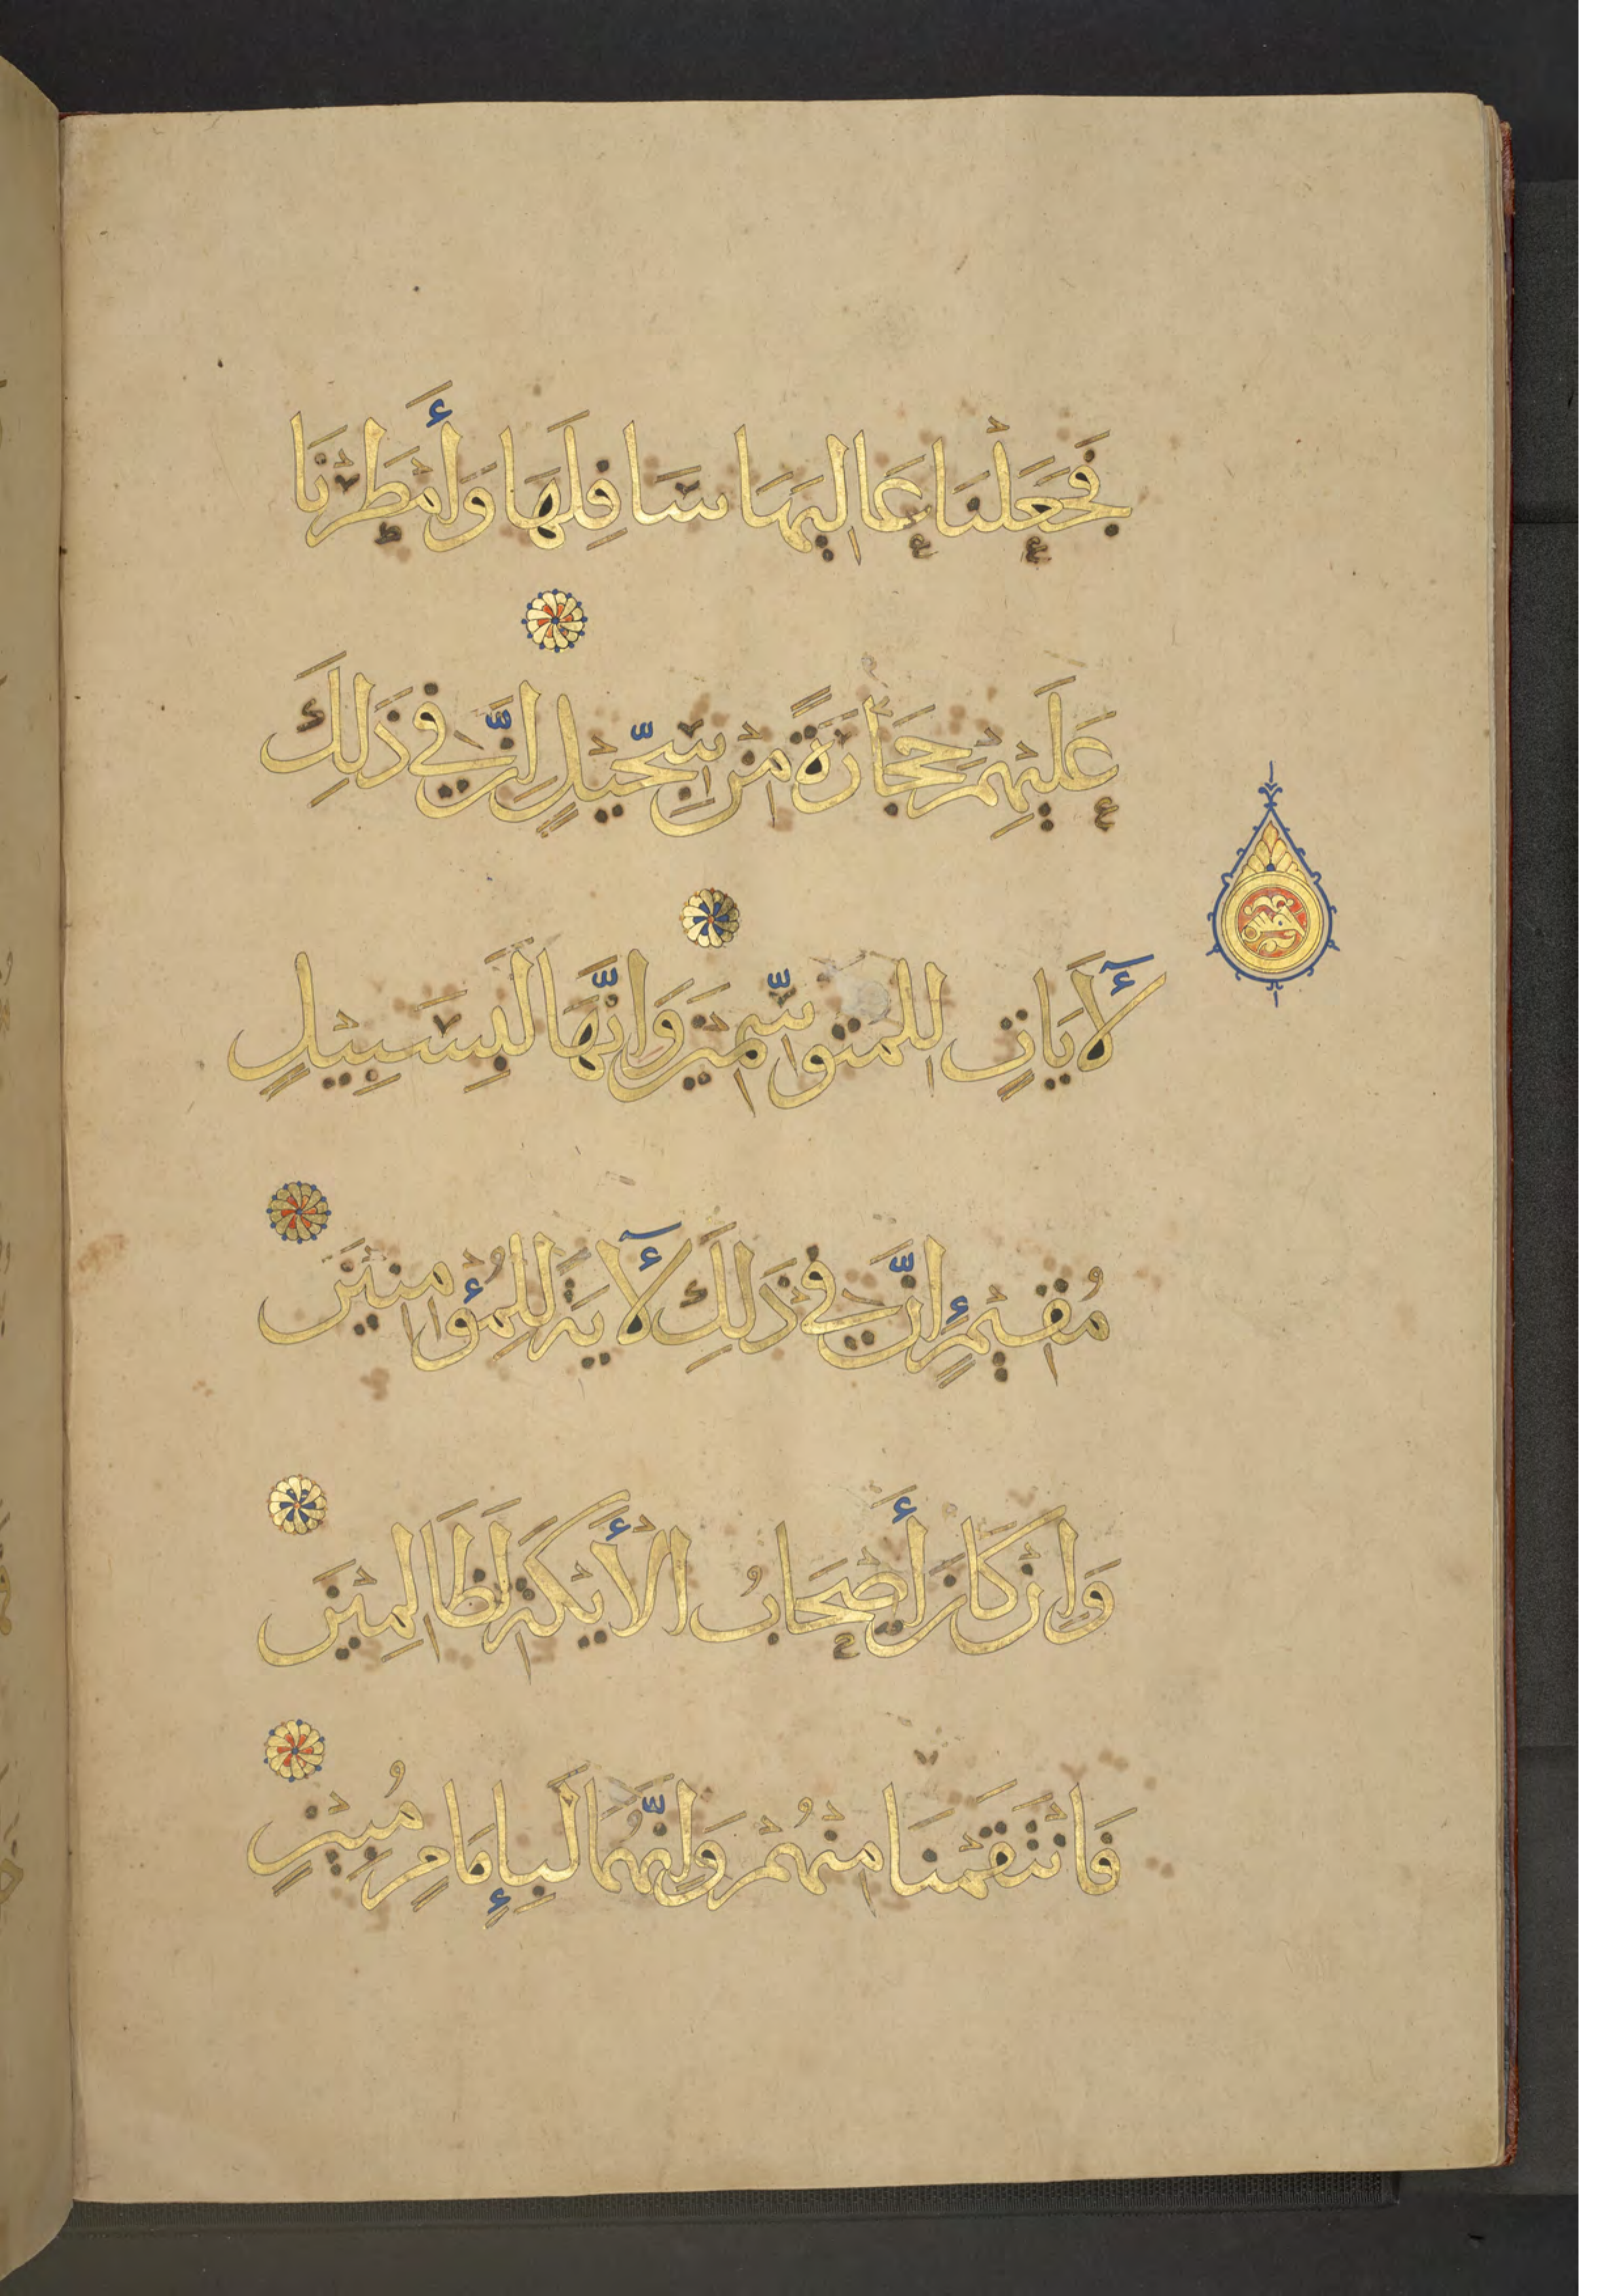 فَجَعَلْنَا عَالِيَهَا سَافِلَهَا وَأَمْطَرْنَا
عَلَيْهِمْ حِجَارَةً مِنْ سِجِّيْلٍ اِنَّ فِي ذَلِكَ
لَأَيَاتٍ لِلْمُتَوَسِّمِيْنَ وَاِنَّهَا لَبِسَبِيْلٍ
مُقِيْمٍ إِنَّ فِي ذَلِكَ لَأَيَةً لِلْمُؤْمِنِيْنَ
وَاِنْ كَانَ أَصْحَابُ الْأَيْكَةِ لَظَالِمِيْنَ
فَانْتَقَمْنَا مِنْهُمْ وَاِنَّهُمَا لَبِإِمَامٍ مُبِيْنٍ